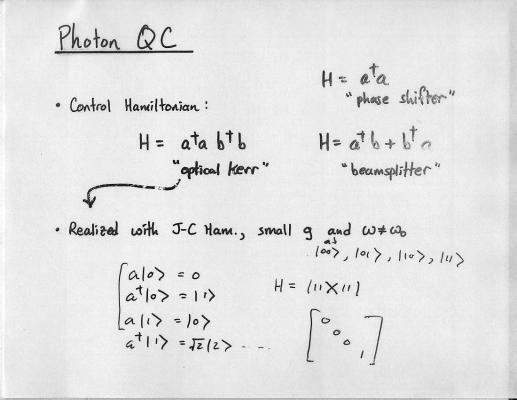 Photon QC
H = a†a
"phase shifter"
• Control Hamiltonian:
H = a†a b†b
"optical Kerr"
H = a†b + b†a
"beamsplitter"
• Realized with J-C Ham., small g and ω≠ω₀
|00⟩, |01⟩, |10⟩, |11⟩
a|0⟩ = 0
a†|0⟩ = |1⟩
a|1⟩ = |0⟩
a†|1⟩ = √2|2⟩ ....
H = |11⟩⟨11|
[0
0
0
1]